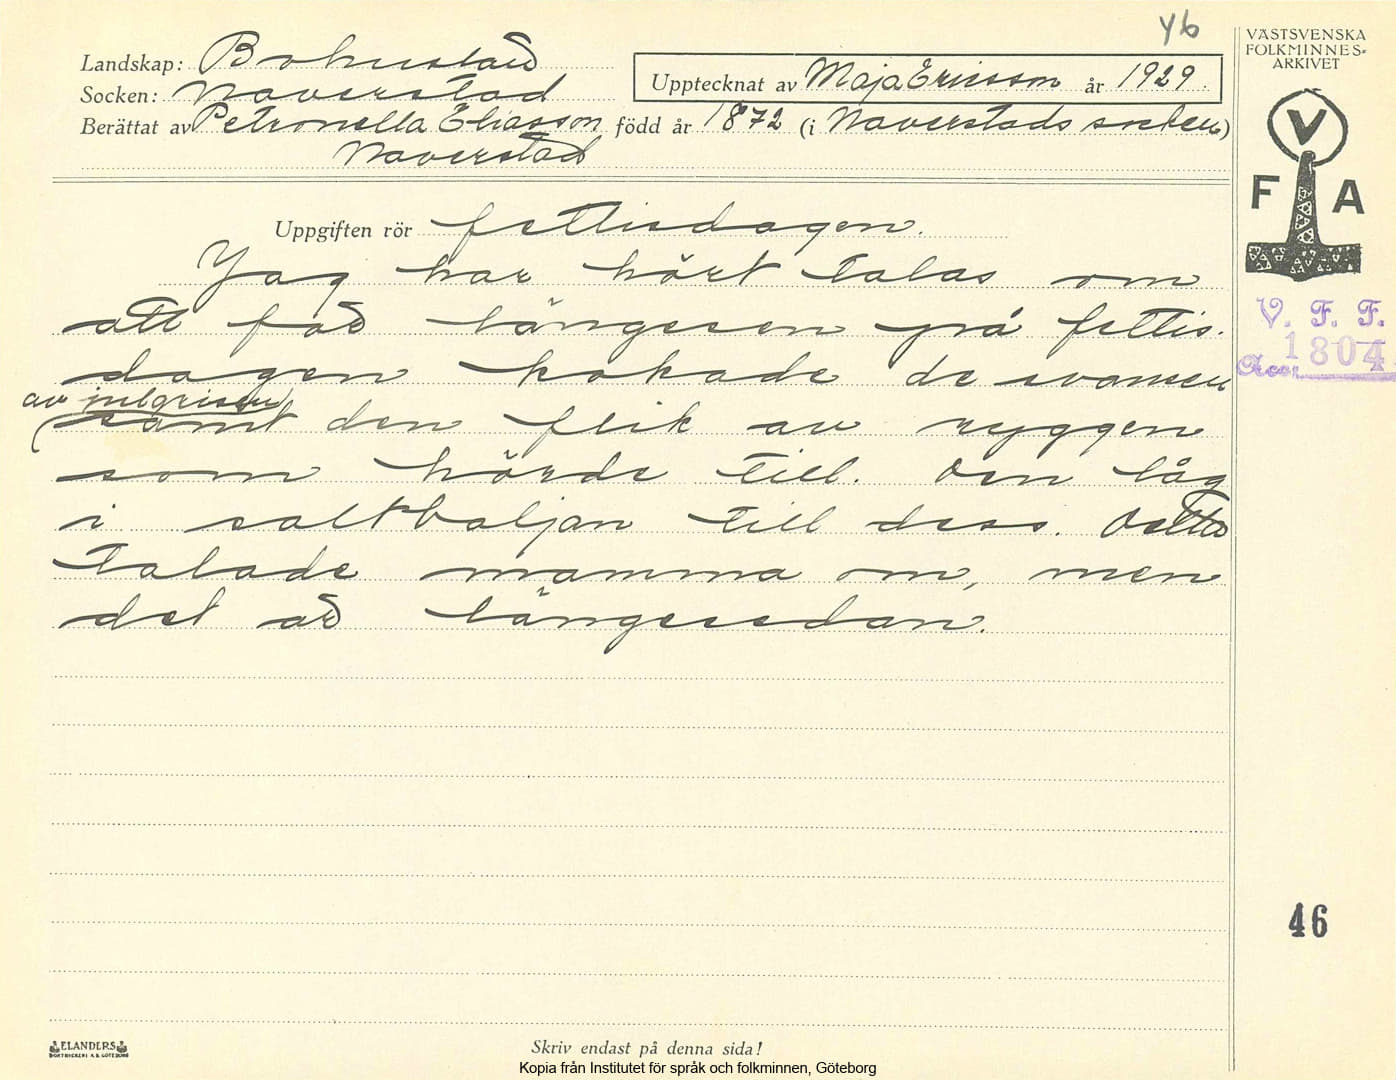 46
VÄSTSVENSKA
FOLKMINNES-
ARKIVET
Landskap: Bohuslän
Upptecknat av Maja Ericsson år 1929.
Socken: Naverstad
Berättat av Petronella Eliasson född år 1872 (i Naverstads socken)
Naverstad
V
F A
Uppgiften rör fettisdagen.
Jag har hört talas om
att för längesen på fettis-
dagen kokade de svansen
av julgrisen
samt den flik av ryggen
som hörde till. Den låg
i saltbaljan till dess. Detta
talade mamma om, men
det är längesedan.
V. F. F.
1804
Acc.
46
ELANDERS
BOKTRYCKERI A.B. GÖTEBORG
Skriv endast på denna sida!
Kopia från Institutet för språk och folkminnen, Göteborg